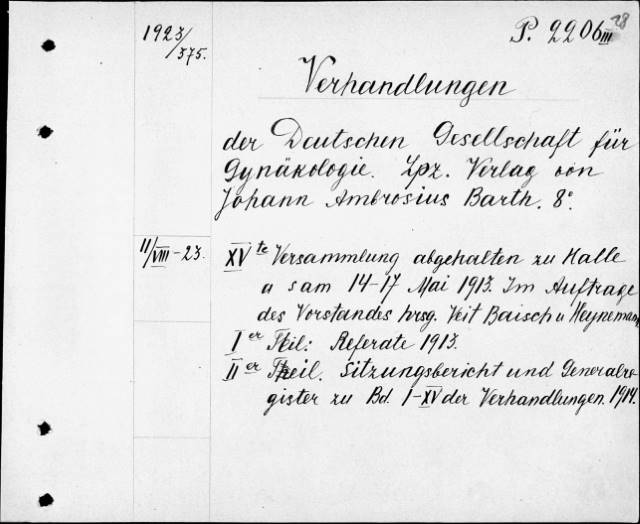 1923/375.
P. 2206 III 28
Verhandlungen
der Deutschen Gesellschaft für
Gynäkologie. Lpz. Verlag von
Johann Ambrosius Barth. 8°.
11/VIII-23.
XVte Versammlung abgehalten zu Halle
a s am 14-17 Mai 1913. Im Auftrage
des Vorstandes hrsg. Veit Baisch u Heynemann
Ier Theil: Referate 1913.
IIer Theil. Sitzungsbericht und Generalre-
gister zu Bd. I-XV der Verhandlungen. 1914.